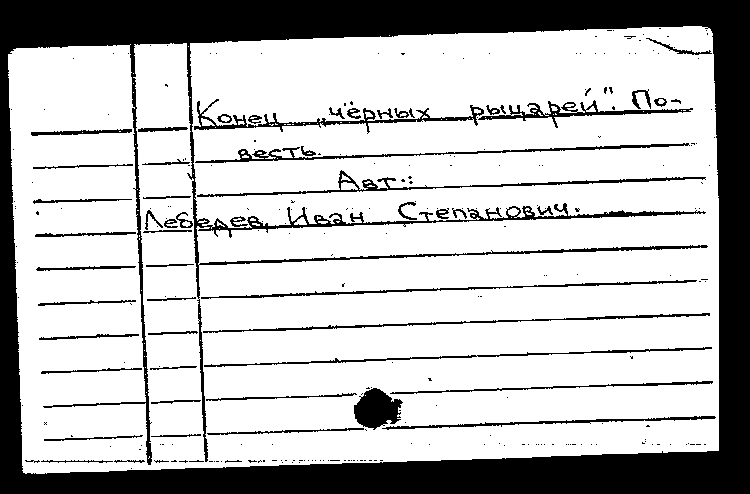 Конец „чёрных рыцарей". По-
весть.
Авт.:
Лебедев, Иван Степанович.